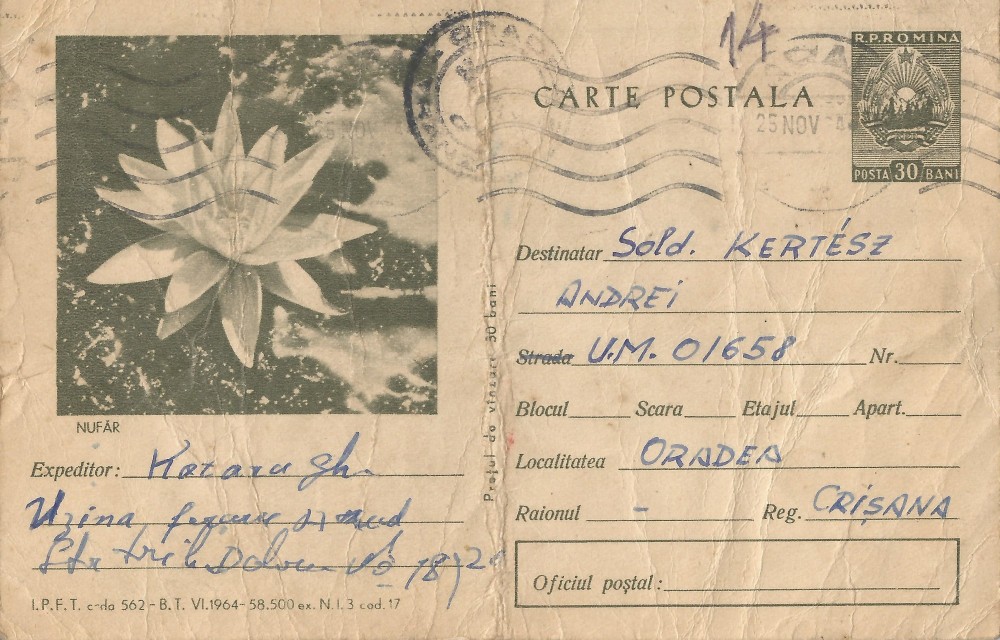 14
CARTE POSTALA
R.P.ROMINA
25 NOV
POSTA 30 BANI
Destinatar Sold. KERTÉSZ
ANDREI
Strada U.M. 01658 Nr.
Blocul Scara Etajul Apart.
Localitatea ORADEA
Raionul - Reg. CRIȘANA
Oficiul poștal:
Prețul de vînzare 30 bani
NUFĂR
Expeditor: Gh.
Uzina
Str
I.P.F.T. c-da 562 - B.T. VI.1964 - 58.500 ex. N.I. 3 cod. 17